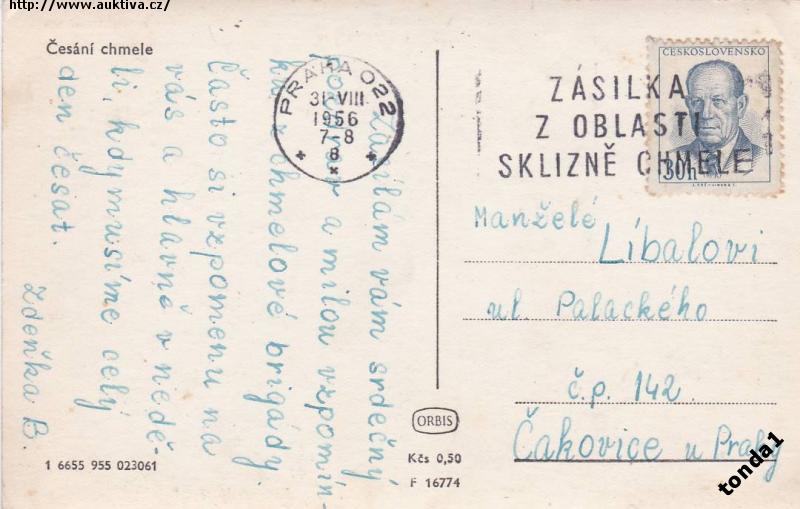 http://www.auktiva.cz/
Česání chmele
Zasílám vám srdečný
pozdrav a milou vzpomín-
ku z chmelové brigády.
Často si vzpomenu na
vás a hlavně v nedě-
li, kdy musíme celý
den česat.
Zdeňka B.
PRAHA 022
31. VIII
1956
7-8
8
ZÁSILKA
Z OBLASTI
SKLIZNĚ CHMELE
ČESKOSLOVENSKO
30h
Manželé
Líbalovi
ul. Palackého
č.p. 142
Čakovice u Prahy
ORBIS
Kčs 0,50
F 16774
1 6655 955 023061
tonda1